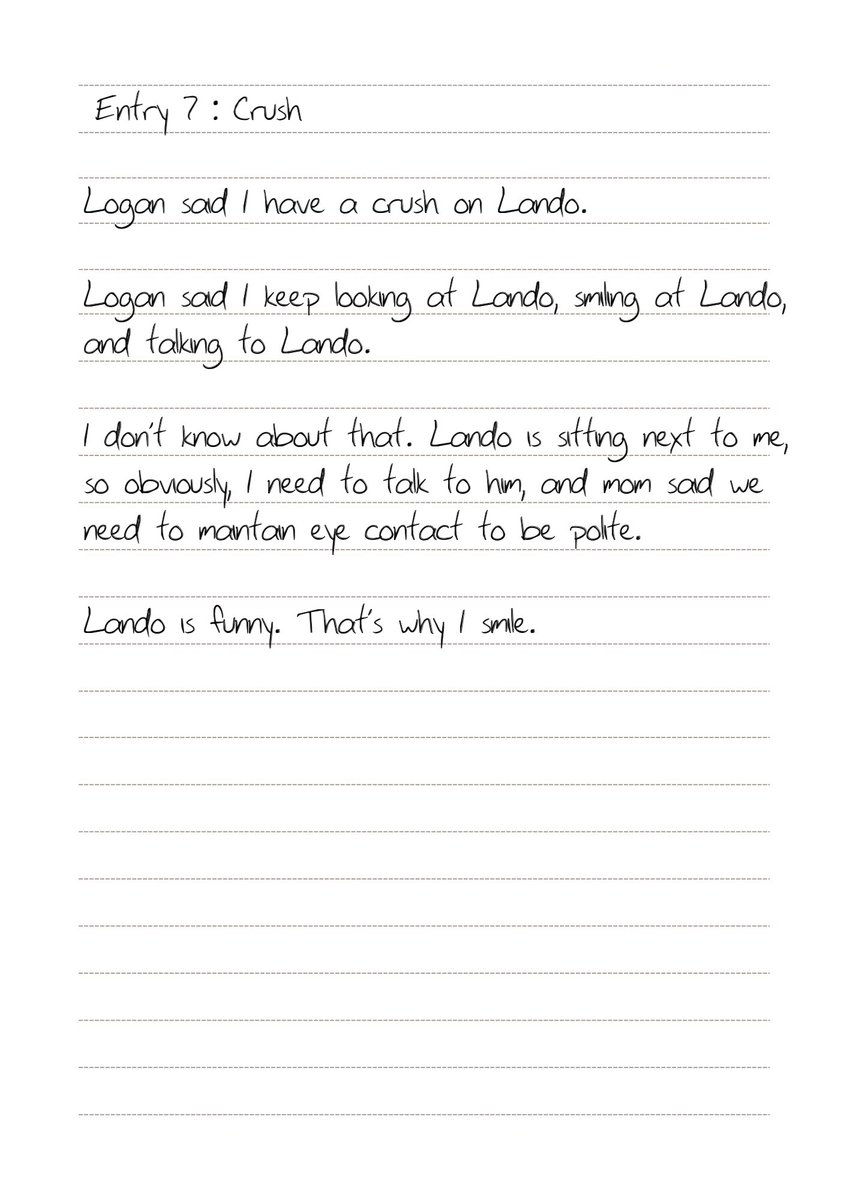 Entry 7 : Crush
Logan said I have a crush on Lando.
Logan said I keep looking at Lando, smiling at Lando,
and talking to Lando.
I don't know about that. Lando is sitting next to me,
so obviously, I need to talk to him, and mom said we
need to maintain eye contact to be polite.
Lando is funny. That's why I smile.